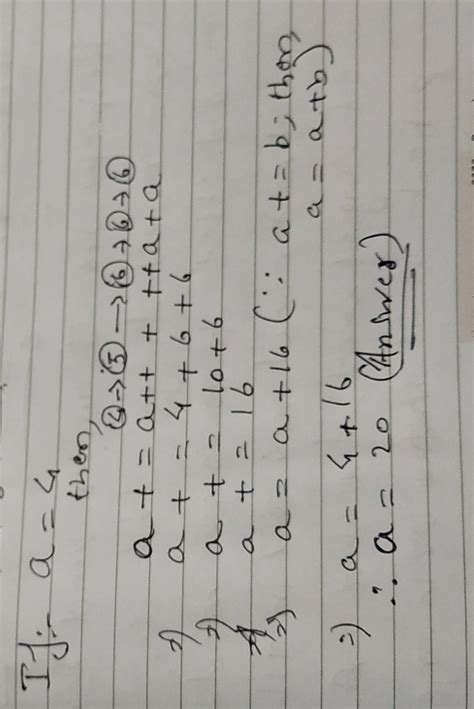 If:- a = 4
then,
④→⑤→⑥→⑥→⑥
a += a++ + ++a + a
⇒) a += 4 + 6 + 6
⇒) a += 10 + 6
⇒) a += 16
⇒) a = a + 16 (∵ a += b; then,
a = a + b)
⇒) a = 4 + 16
∴ a = 20 (Answer)